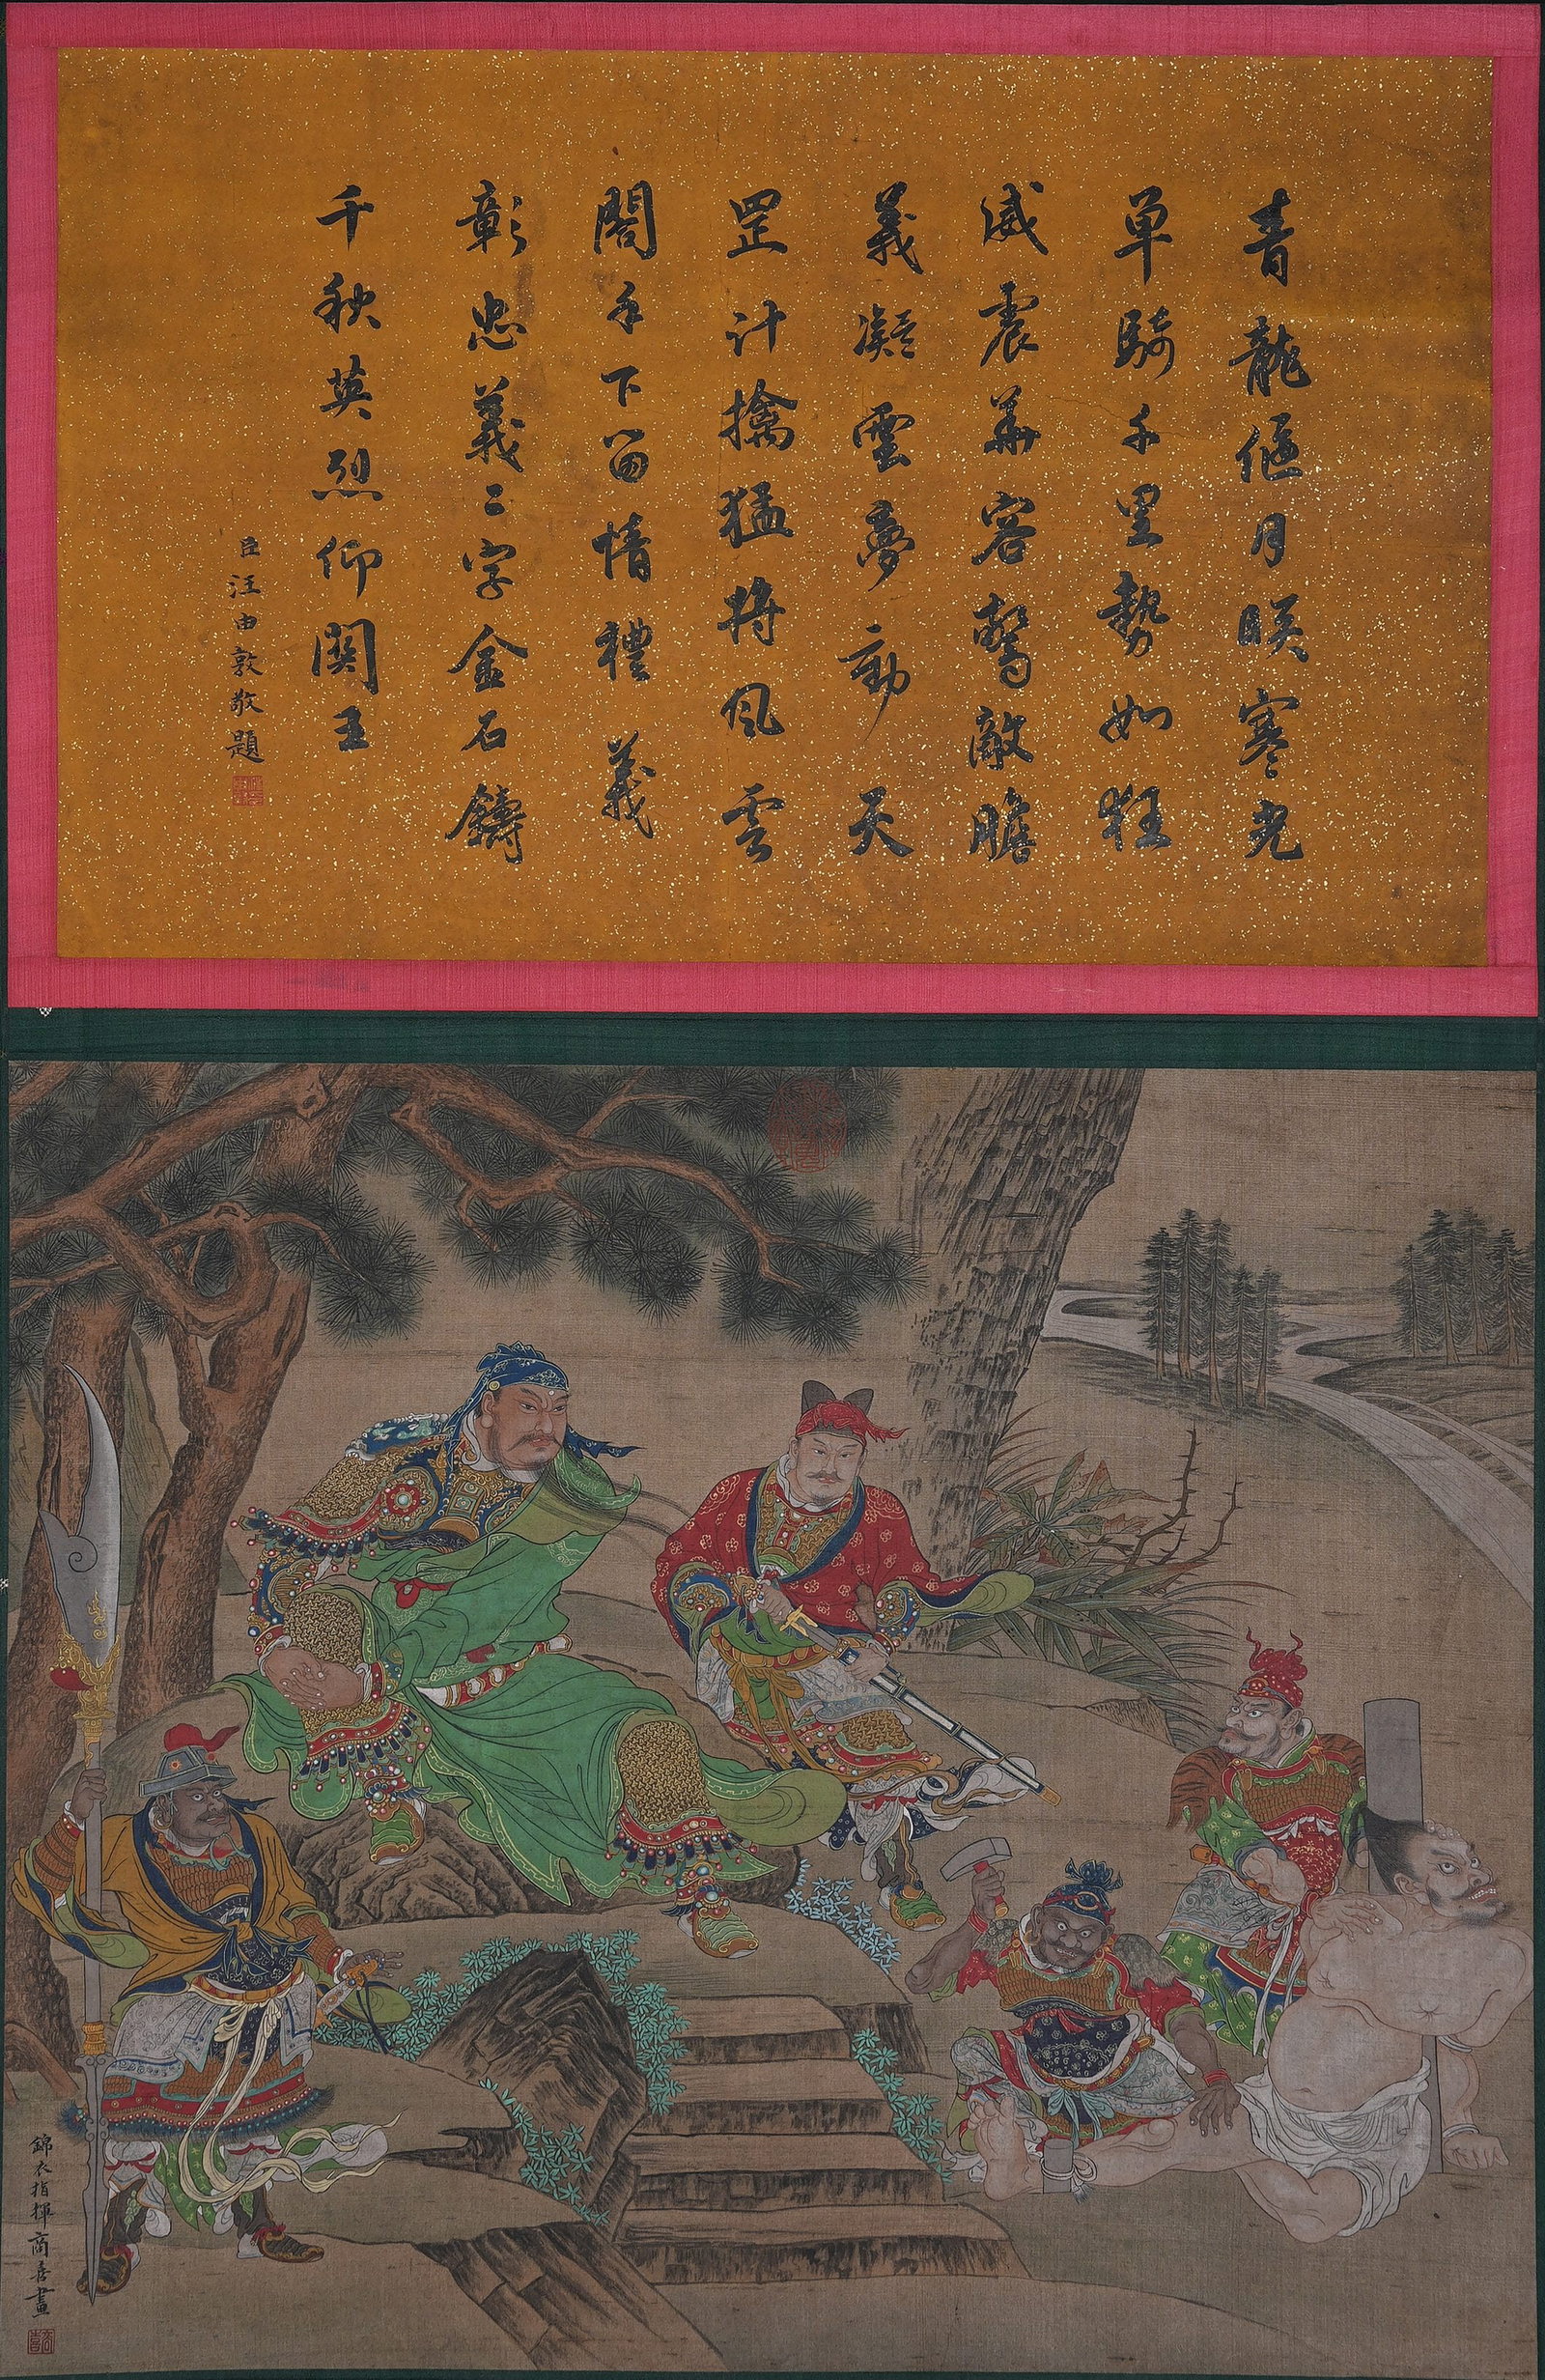 青龍偃月映寒光
单騎千里勢如狂
威震華容驚敵膽
義凝雲夢動天
罡计擒猛将风雲
閣手下留情禮義
彰忠義二字金石鑄
千秋英烈仰関王
臣汪由敦敬題
錦衣指揮商喜畫
商喜